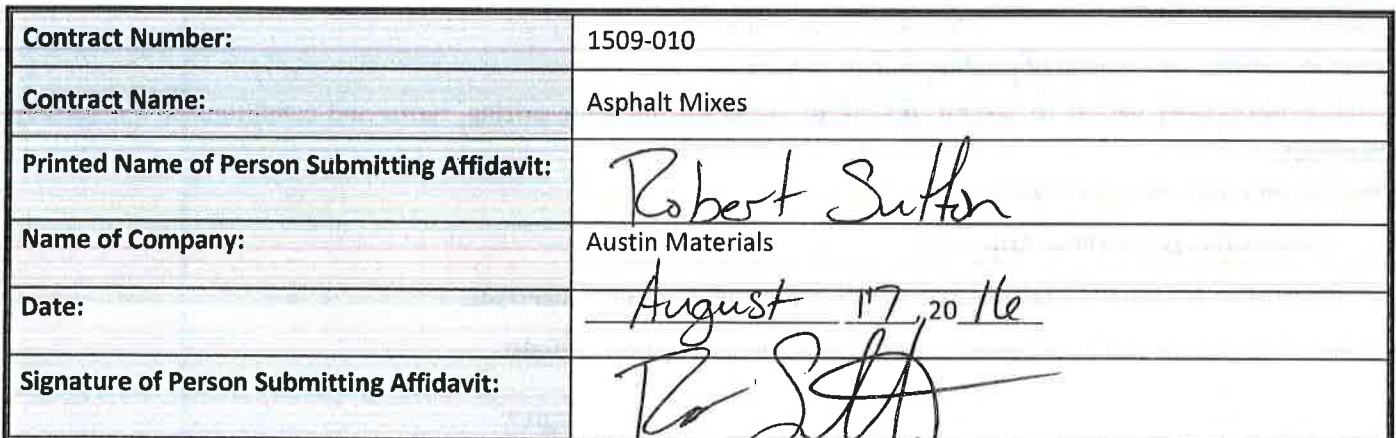 Contract Number: 1509-010
Contract Name: Asphalt Mixes
Printed Name of Person Submitting Affidavit: Robert Sutton
Name of Company: Austin Materials
Date: August 17, 20 16
Signature of Person Submitting Affidavit: